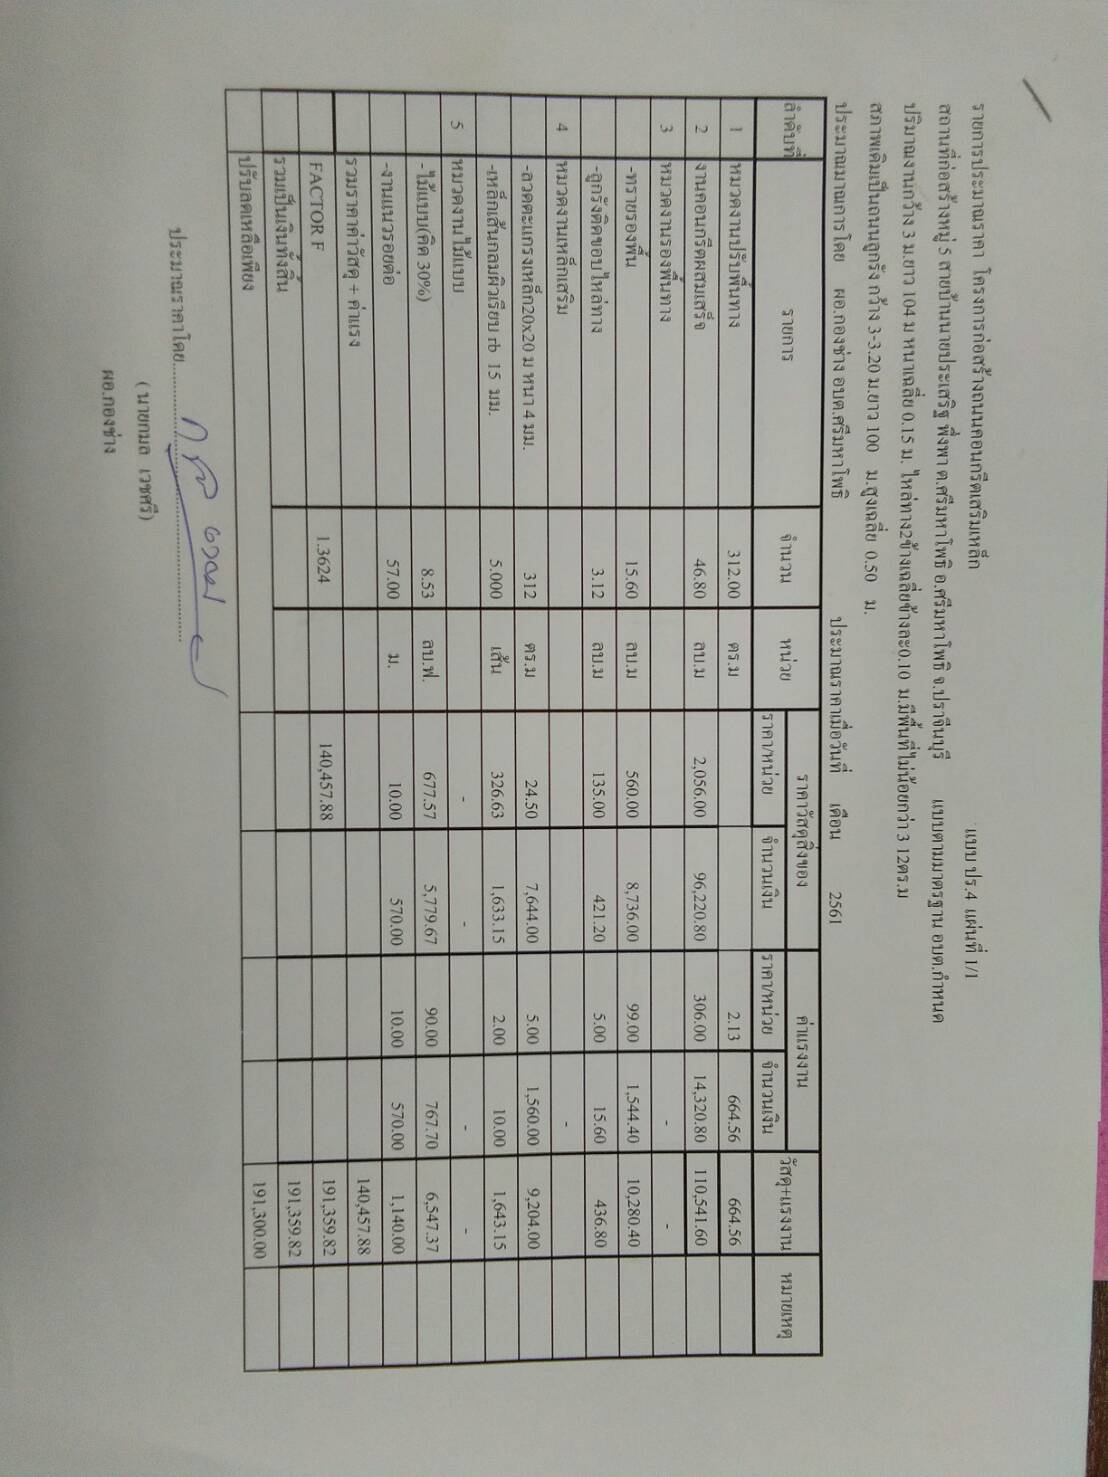 แบบ ปร.4 แผ่นที่ 1/1
รายการประมาณราคา โครงการก่อสร้างถนนคอนกรีตเสริมเหล็ก
สถานที่ก่อสร้างหมู่ 5 สายบ้านนายประเสริฐ พึ่งพา ต.ศรีมหาโพธิ อ.ศรีมหาโพธิ จ.ปราจีนบุรี แบบตามมาตรฐาน อบต.กำหนด
ปริมาณงานกว้าง 3 ม.ยาว 104 ม หนาเฉลี่ย 0.15 ม. ไหล่ทาง2ข้างเฉลี่ยข้างละ0.10 ม.มีพื้นที่ไม่น้อยกว่า 3 12ตร.ม
สภาพเดิมเป็นถนนลูกรัง กว้าง 3-3.20 ม.ยาว 100 ม.สูงเฉลี่ย 0.50 ม.
ประมาณมาณการโดย ผอ.กองช่าง อบต.ศรีมหาโพธิ ประมาณราคาเมื่อวันที่ เดือน 2561
ลำดับที่ รายการ จำนวน หน่วย ราคาวัสดุสิ่งของ ค่าแรงงาน วัสดุ+แรงงาน หมายเหตุ
ราคา/หน่วย จำนวนเงิน ราคา/หน่วย จำนวนเงิน
1 หมวดงานปรับพื้นทาง 312.00 ตร.ม 2.13 664.56 664.56
2 งานคอนกรีตผสมเสร็จ 46.80 ลบ.ม 2,056.00 96,220.80 306.00 14,320.80 110,541.60
3 หมวดงานรองพื้นทาง - -
-ทรายรองพื้น 15.60 ลบ.ม 560.00 8,736.00 99.00 1,544.40 10,280.40
-ลูกรังติดขอบไหล่ทาง 3.12 ลบ.ม 135.00 421.20 5.00 15.60 436.80
4 หมวดงานเหล็กเสริม -
-ลวดตะแกรงเหล็ก20x20 ม หนา 4 มม. 312 ตร.ม 24.50 7,644.00 5.00 1,560.00 9,204.00
-เหล็กเส้นกลมผิวเรียบ rb 15 มม. 5.000 เส้น 326.63 1,633.15 2.00 10.00 1,643.15
5 หมวดงานไม้แบบ - - - -
-ไม้แบบ(คิด 30%) 8.53 ลบ.ฟ. 677.57 5,779.67 90.00 767.70 6,547.37
-งานแนวรอยต่อ 57.00 ม. 10.00 570.00 10.00 570.00 1,140.00
รวมราคาค่าวัสดุ + ค่าแรง 140,457.88
FACTOR F 1.3624 140,457.88 191,359.82
รวมเป็นเงินทั้งสิ้น 191,359.82
ปรับลดเหลือเพียง 191,300.00
ประมาณราคาโดย
( นายกมล เวชศรี)
ผอ.กองช่าง